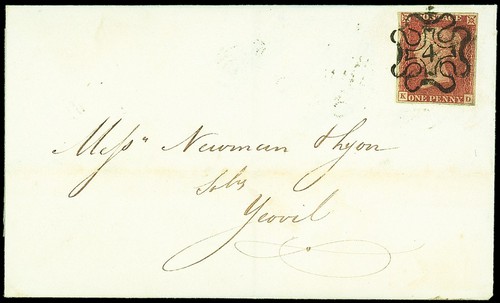 POSTAGE
4
K ONE PENNY D
Mess^rs Newman & Lyon
Sol^rs
Yeovil